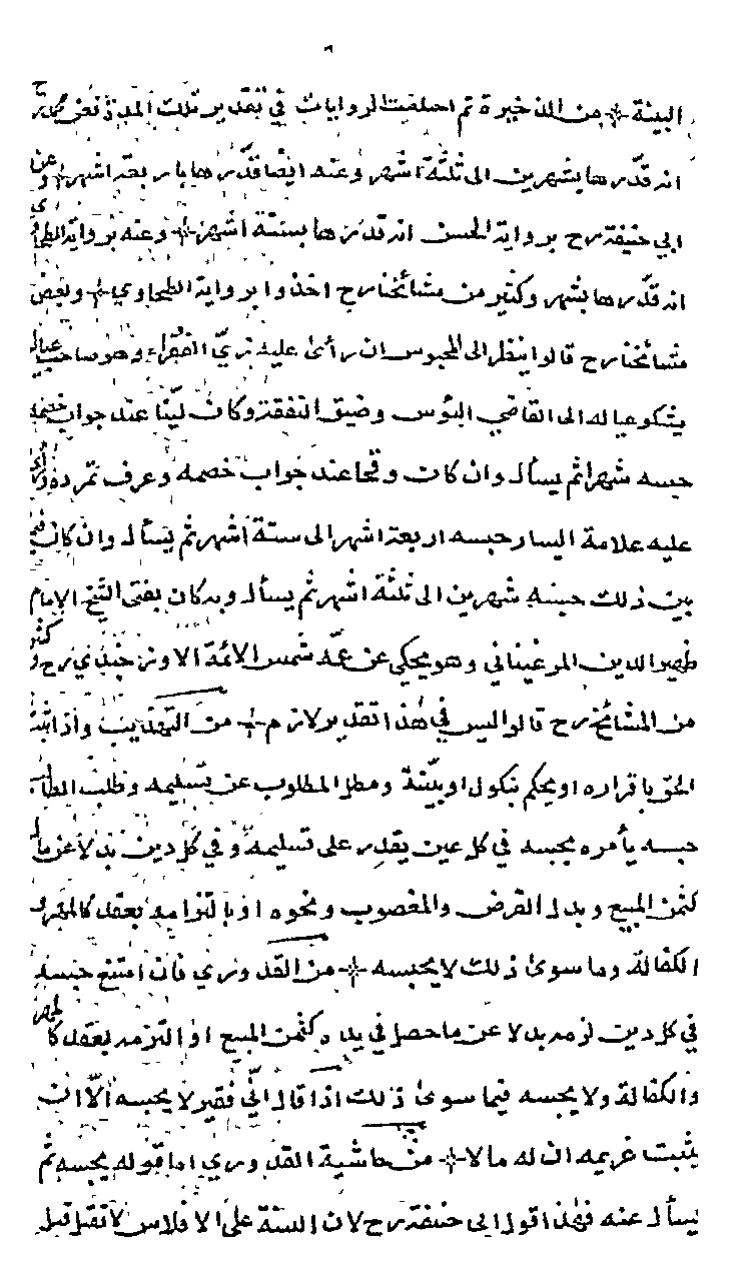 ٦
البينة ÷ من الذخيرة ثم اختلفت الروايات في تقدير تلك المدة فعن محمد رح
انه قدّرها بشهرين الى ثلثة اشهر وعنه ايضا قدّرها باربعة اشهر ÷ وعن
ابي حنيفة رح برواية الحسن انه قدّرها بستة اشهر ÷ وعنه برواية الطحاوي
انه قدّرها بشهر وكثير من مشائخنا رح اخذوا برواية الطحاوي ÷ وبعض
مشائخنا رح قالوا ينظر الى المحبوس ان رأى عليه زيّ الفقراء وهو صاحب عيال
يشكو عياله الى القاضي البؤس وضيق النفقة وكان ليّنا عند جواب خصمه
حبسه شهرا ثم يسأل وان كان وقحا عند جواب خصمه وعرف تمرده ورأى
عليه علامة اليسار حبسه اربعة اشهر الى ستة اشهر ثم يسأل وان كان فيما
بين ذلك حبسه شهرين الى ثلثة اشهر ثم يسأل وبه كان يفتى الشيخ الامام
ظهير الدين المرغيناني وهو يحكي عن عمّه شمس الائمة الاوزجندي رح وكثير
من المشائخ رح قالوا ليس في هذا تقدير لازم ÷ من التهذيب واذا ثبت
الحق باقراره او يحكم بنكول او بيّنة ومطل المطلوب عن تسليمه وطلب الطالب
حبسه يأمره بحبسه في كل عين يقدر على تسليمه وفي كل دين بدلا عن مال
كثمن المبيع وبدل القرض والمغصوب ونحوه او بالتزامه بعقد كالمهر و
الكفالة وما سوى ذلك لا يحبسه ÷ من القدوري فان امتنع حبسه
في كل دين لزمه بدلا عن ما حصل في يده كثمن المبيع او التزمه بعقد كالمهر
والكفالة ولا يحبسه فيما سوى ذلك اذا قال اني فقير لا يحبسه الّا ان
يثبت غريمه ان له مالا ÷ من حاشية القدوري اما قوله يحبسه ثم
يسأل عنه فهذا قول ابي حنيفة رح لان البينة على الافلاس لا تقبل قبل